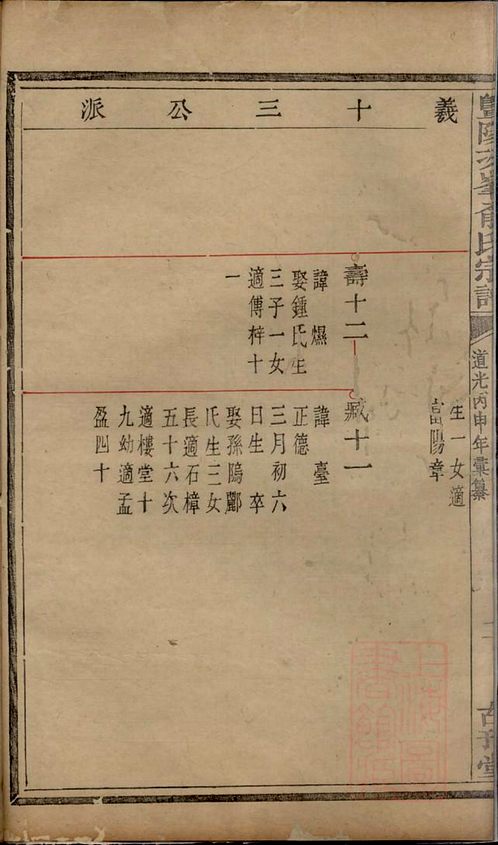 義十三公派
生一女適
富陽章
壽十二
諱爆
娶鍾氏生
三子一女
適傅梓十
一
臧十一
諱臺
正德
三月初六
日生 卒
娶孫鄔酈
氏生三女
長適石樟
五十六次
適樓堂十
九幼適孟
盈四十
俞氏宗譜
道光丙申年彙纂